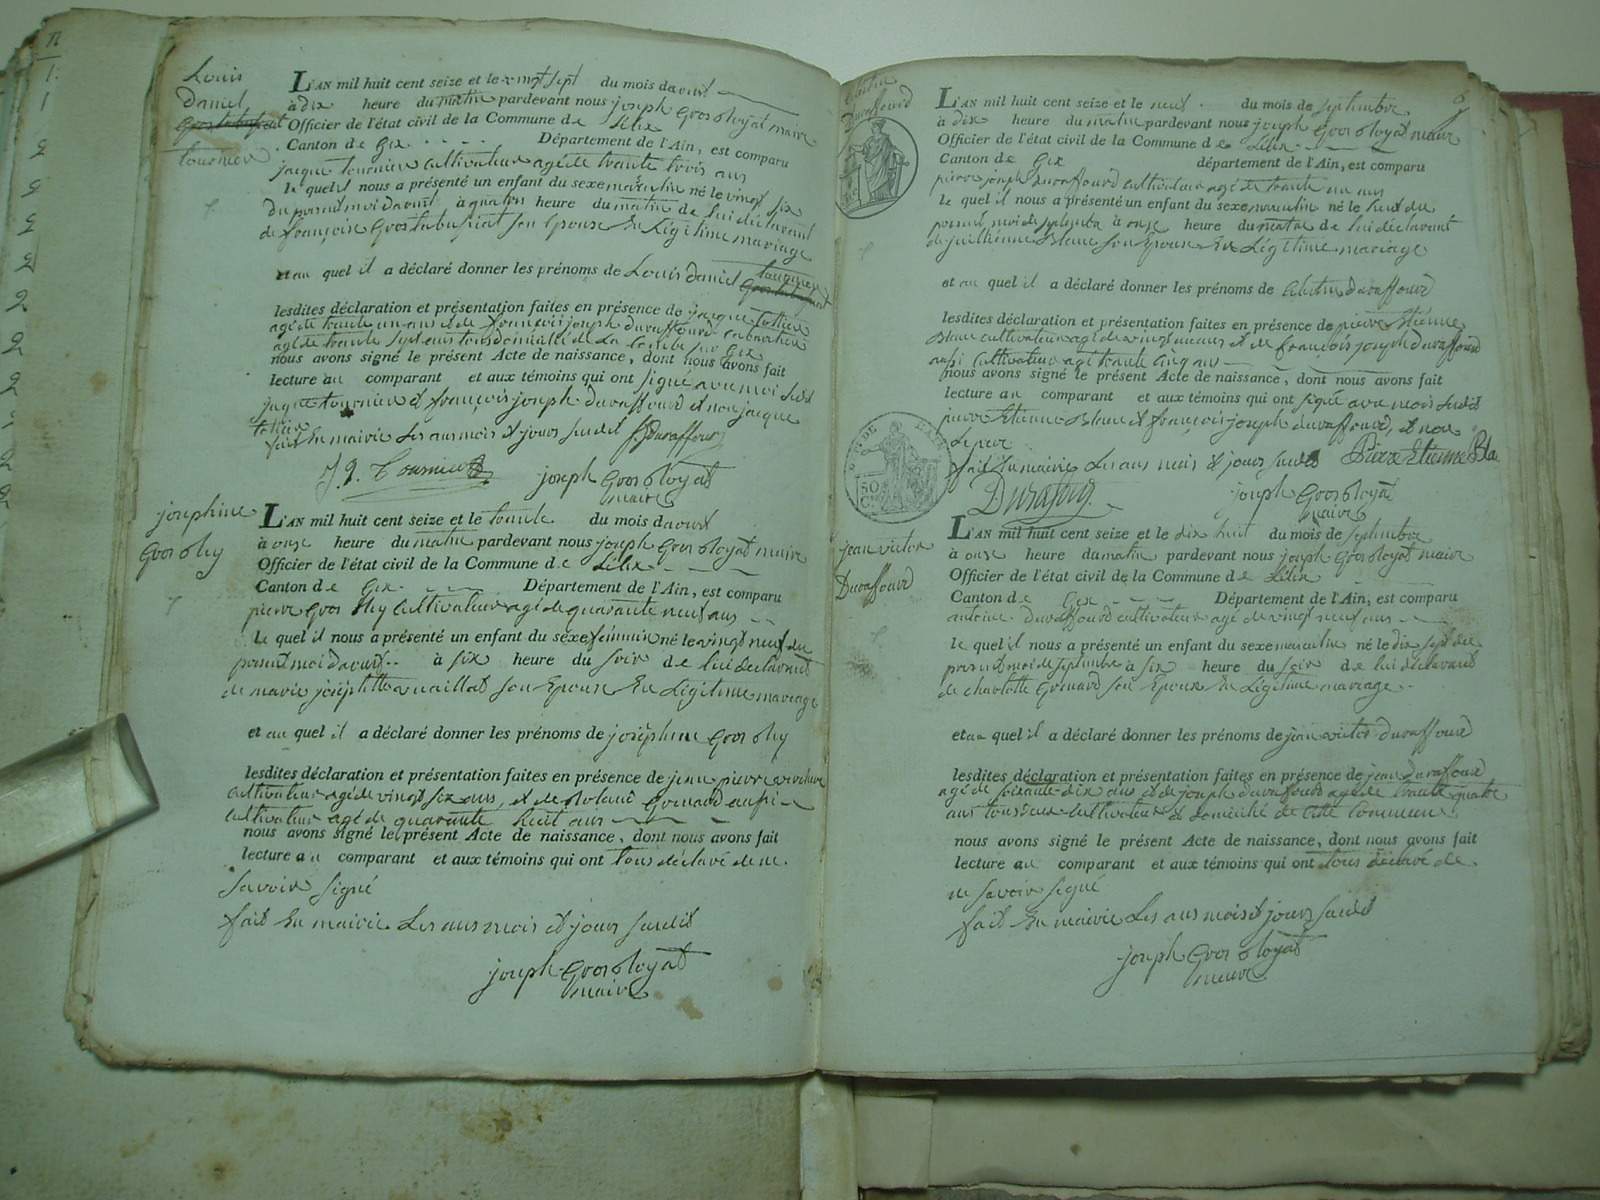 Louis
Daniel
tournier
L'AN mil huit cent seize et le vingt sept du mois daout
à dix heure du matin pardevant nous joseph Grosgloyat maire
Officier de l'état civil de la Commune de Lelex
Canton de Gex Département de l'Ain, est comparu
jacque tournier cultivateur agé de trante trois ans
le quel il nous a présenté un enfant du sexe masculin né le vingt six
du present moi daout à quatres heure du matin de lui déclarant
de françoise son Epouse En Légitime mariage
et au quel il a déclaré donner les prénoms de Louis Daniel tournier
lesdites déclaration et présentation faites en présence de jacque
agé de trante un ans et de françois joseph duraffourd
agé de trante sept ans tous
nous avons signé le présent Acte de naissance, dont nous avons fait
lecture au comparant et aux témoins qui ont signé avec moi sudit
jaque tournier et françois joseph duraffourd et non jacque
fait En mairie Les ans mois et jours sudit Jj Duraffour
J. Q. Tournier joseph Grosgloyat
maire
josephine
L'AN mil huit cent seize et le trante du mois daout
à onze heure du matin pardevant nous joseph Grosgloyat maire
Officier de l'état civil de la Commune de Lelex
Canton de Gex Département de l'Ain, est comparu
pierre cultivateur agé de quarante neuf ans
Le quel il nous a présenté un enfant du sexe féminin né le vingt neuf du
present moi daout à six heure du soir de lui déclarant
de marie son Epouse En Légitime mariage
et au quel il a déclaré donner les prénoms de joséphine
lesdites déclaration et présentation faites en présence de jean pierre
cultivateur agé de vingt six ans, et de Roland Grenard aussi
cultivateur agé de quarante huit ans
nous avons signé le présent Acte de naissance, dont nous avons fait
lecture au comparant et aux témoins qui ont tous déclaré de ne
savoir signé
fait En mairie Les ans mois et jours sudit
joseph Grosgloyat
maire
6
Duraffourd
L'AN mil huit cent seize et le neuf du mois de septembre
à dix heure du matin pardevant nous joseph Grosgloyat maire
Officier de l'état civil de la Commune de Lelex
Canton de Gex département de l'Ain, est comparu
pierre joseph duraffourd cultivateur agé de trante un ans
le quel il nous a présenté un enfant du sexe masculin né le huit du
present moi de septembre à onze heure du matin de lui déclarant
de Blanc son Epouse En Légitime mariage
et au quel il a déclaré donner les prénoms de duraffourd
lesdites déclaration et présentation faites en présence de pierre Etiénne
Blanc cultivateur agé de vingt ans et de françois joseph duraffourd
aussi cultivateur agé trante cinq ans
nous avons signé le présent Acte de naissance, dont nous avons fait
lecture au comparant et aux témoins qui ont signé avec mois sudit
pierre Etienne Blanc et françois joseph duraffourd, et non
Le pere
fait En mairie Les ans mois et jours sudit Pierre Etienne Bla
Durafour joseph Grosgloyat
maire
DE L'AIN
50
C.
jean victor
Duraffourd
L'AN mil huit cent seize et le dix huit du mois de septembre
à onze heure du matin pardevant nous joseph Grosgloyat maire
Officier de l'état civil de la Commune de Lélex
Canton de Gex Département de l'Ain, est comparu
antoine duraffourd cultivateur agé de vingt neuf ans
le quel il nous a présenté un enfant du sexe masculin né le dix sept du
present moi de septembre à six heure du soir de lui déclarant
de charlotte Grenard son Epouse En Légitime mariage
et au quel il a déclaré donner les prénoms de jean victor duraffourd
lesdites déclaration et présentation faites en présence de jean duraffourd
agé de soixante-dix ans et de joseph duraffourd agé de trante quatre
ans tous deux cultivateur et domicilié de cette commune
nous avons signé le présent Acte de naissance, dont nous avons fait
lecture au comparant et aux témoins qui ont tous déclaré de
ne savoir signé
fait En mairie Les ans mois et jours sudit
joseph Grosgloyat
maire